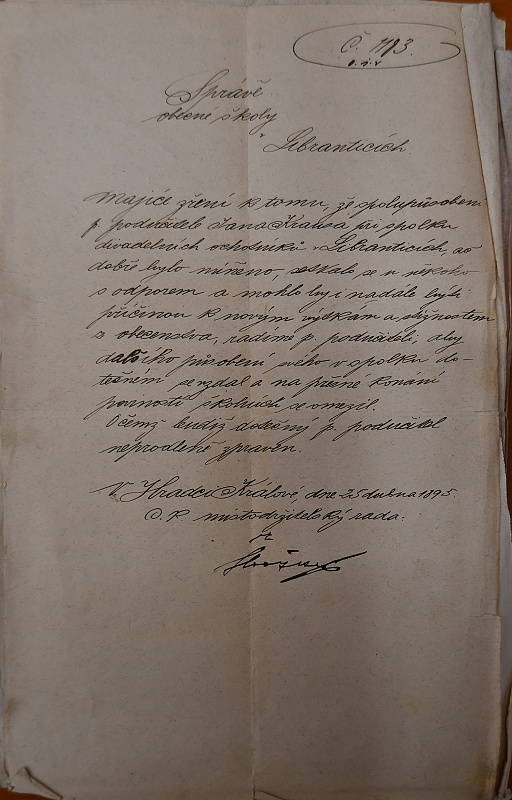 Č. 1183.
o. š. r.
Správě
obecné školy
v Libranticích.
Majíce zření k tomu, že spolupůsobení
p. podučitele Jana Krausa při spolku
divadelních ochotníků v Libranticích, ač
dobře bylo míněno, setkalo se u někoho
s odporem a mohlo by i nadále býti
příčinou k novým výtkám a stížnostem
z obecenstva, radíme p. podučiteli, aby
dalšího působení svého v spolku do-
tčeném se vzdal a na přesné konání
povinností školních se omezil.
O čemž budiž dotčený p. podučitel
neprodleně zpraven.
V Hradci Králové, dne 25 dubna 1895.
C. k. místodržitelský rada: